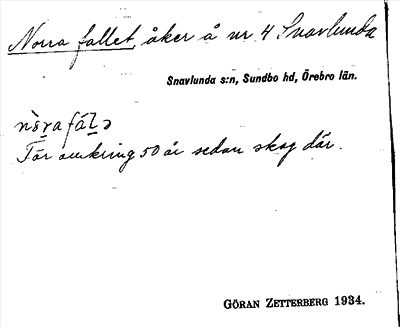 Norra fallet, åker å nr 4 Snavlunda
Snavlunda s:n, Sundbo hd, Örebro län.
nòra fálə
För omkring 50 år sedan skog där.
GÖRAN ZETTERBERG 1934.